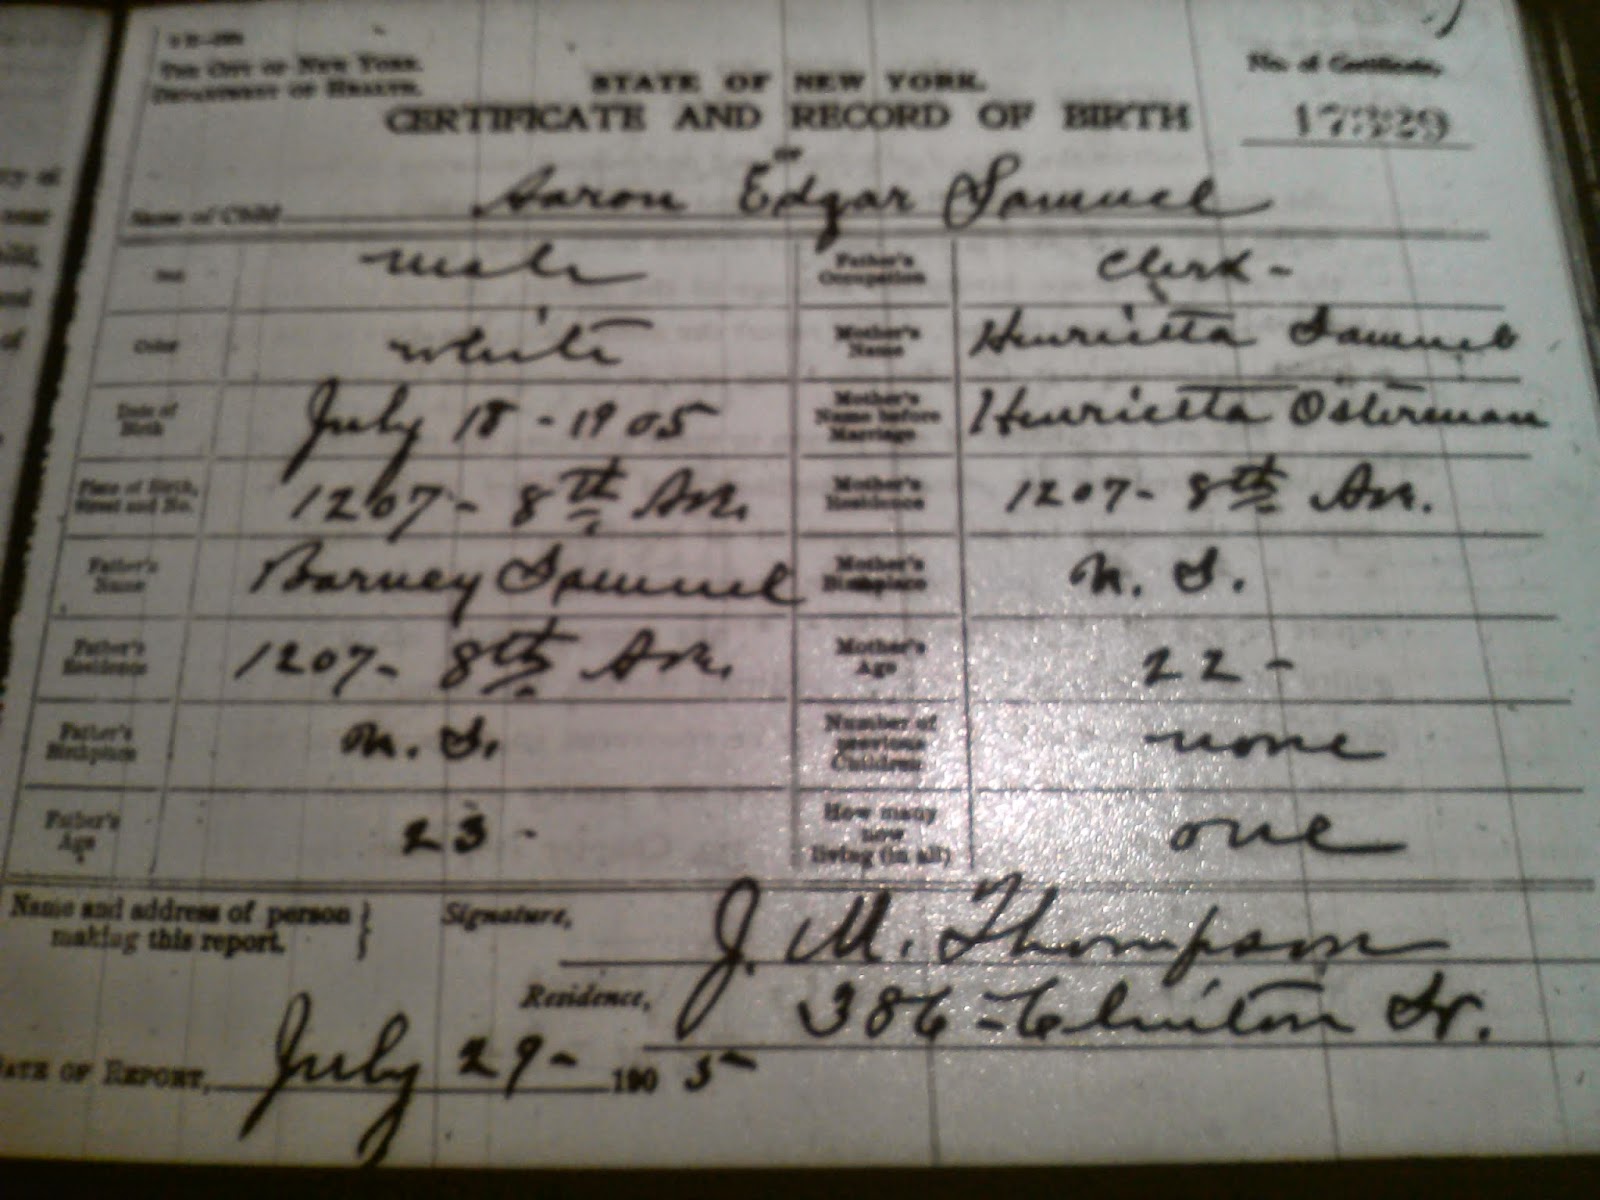 THE CITY OF NEW YORK.
DEPARTMENT OF HEALTH.
STATE OF NEW YORK.
No. of Certificate,
CERTIFICATE AND RECORD OF BIRTH
OF
Name of Child Aaron Edgar Samuel
Sex male Father's Occupation Clerk -
Color white Mother's Name Henrietta Samuel
Date of Birth July 18 - 1905 Mother's Name before Marriage Henrietta Osterman
Place of Birth, Street and No. 1207 - 8th Ave. Mother's Residence 1207 - 8th Ave.
Father's Name Barney Samuel Mother's Birthplace
Father's Residence 1207 - 8th Ave. Mother's Age 22 -
Father's Birthplace Number of previous Children none
Father's Age 23 - How many now living (in all) one
Name and address of person making this report. Signature, J. M. Thompson
Residence, 386 - Clinton St.
DATE OF REPORT, July 29 - 1905